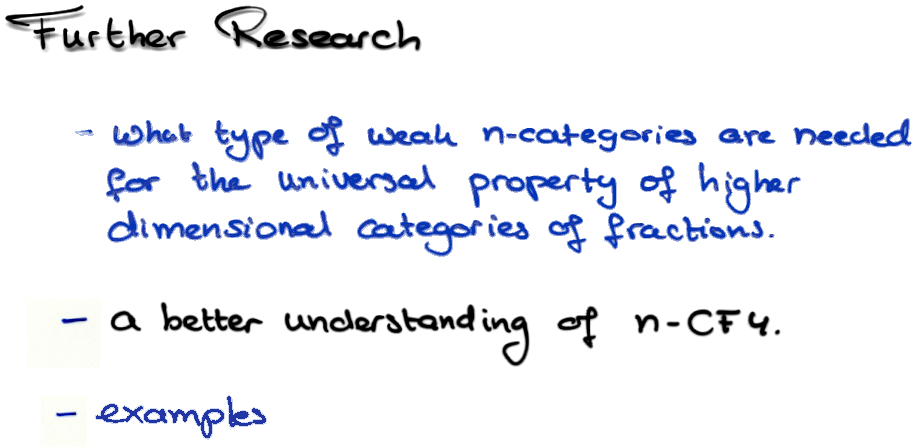 Further Research
- what type of weak n-categories are needed
for the universal property of higher
dimensional categories of fractions.
- a better understanding of n-CF4.
- examples